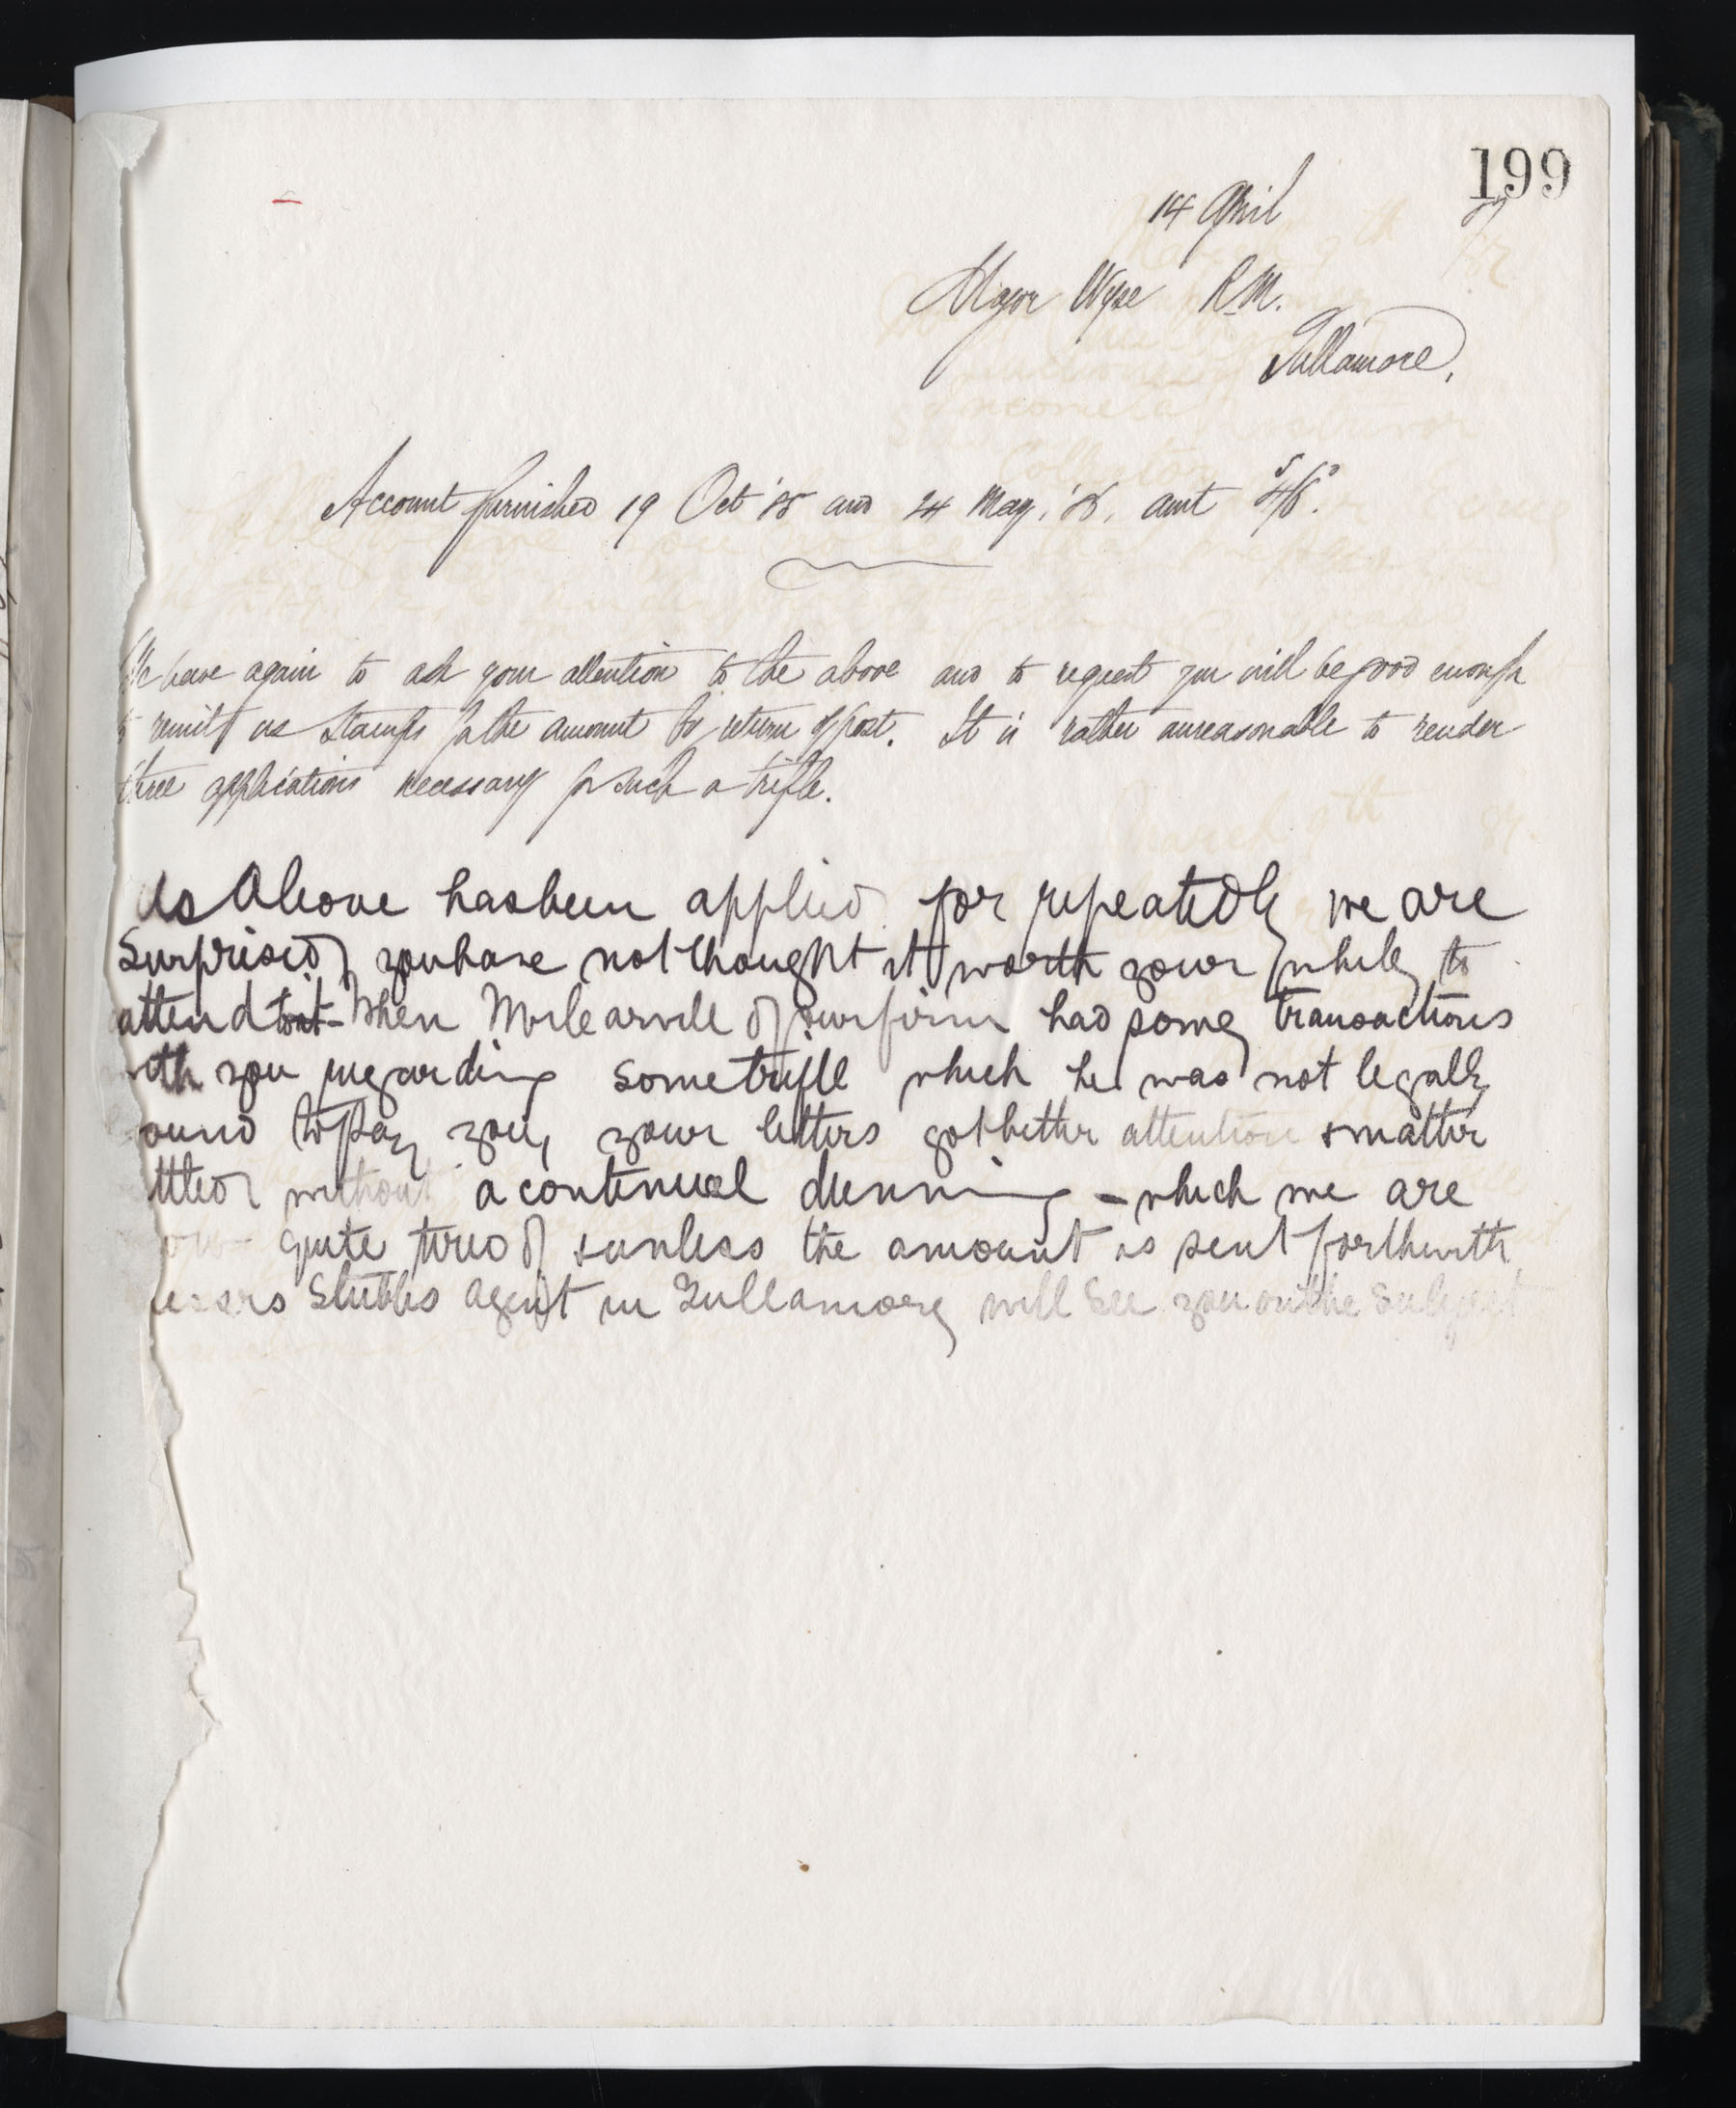 199
14 April 87
Major Wyse R.M.
Tullamore,
Account furnished 19 Oct '85 and 24 May, '86, amt
We have again to ask your attention to the above and to request you will be good enough
remit us stamps for the amount by return of post. It is rather unreasonable to render
three applications necessary for such a trifle.
As Above has been applied for repeatedly we are
Surprised you have not thought it worth your while to
attend to it - When of our firm had some transactions
th you regarding some trifle which he was not legally
ound to pay you, your letters got better attention & matter
ttled without a continual dunning - which we are
ow quite tired of & unless the amount is sent forthwith
essrs Stubbs agent in Tullamore will see you on the subject